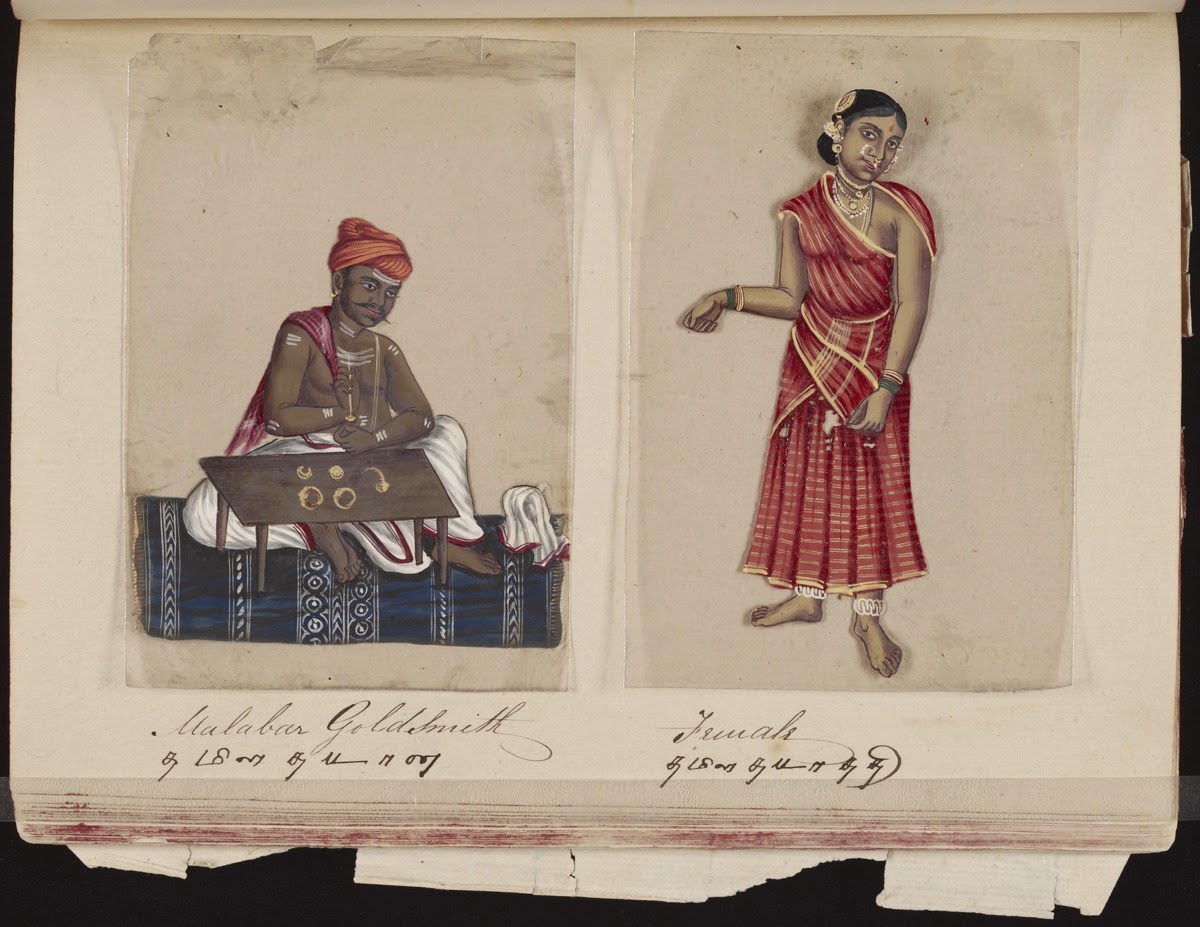 Malabar Goldsmith
தமிள தடடான
Female
தமிள தடடாததி